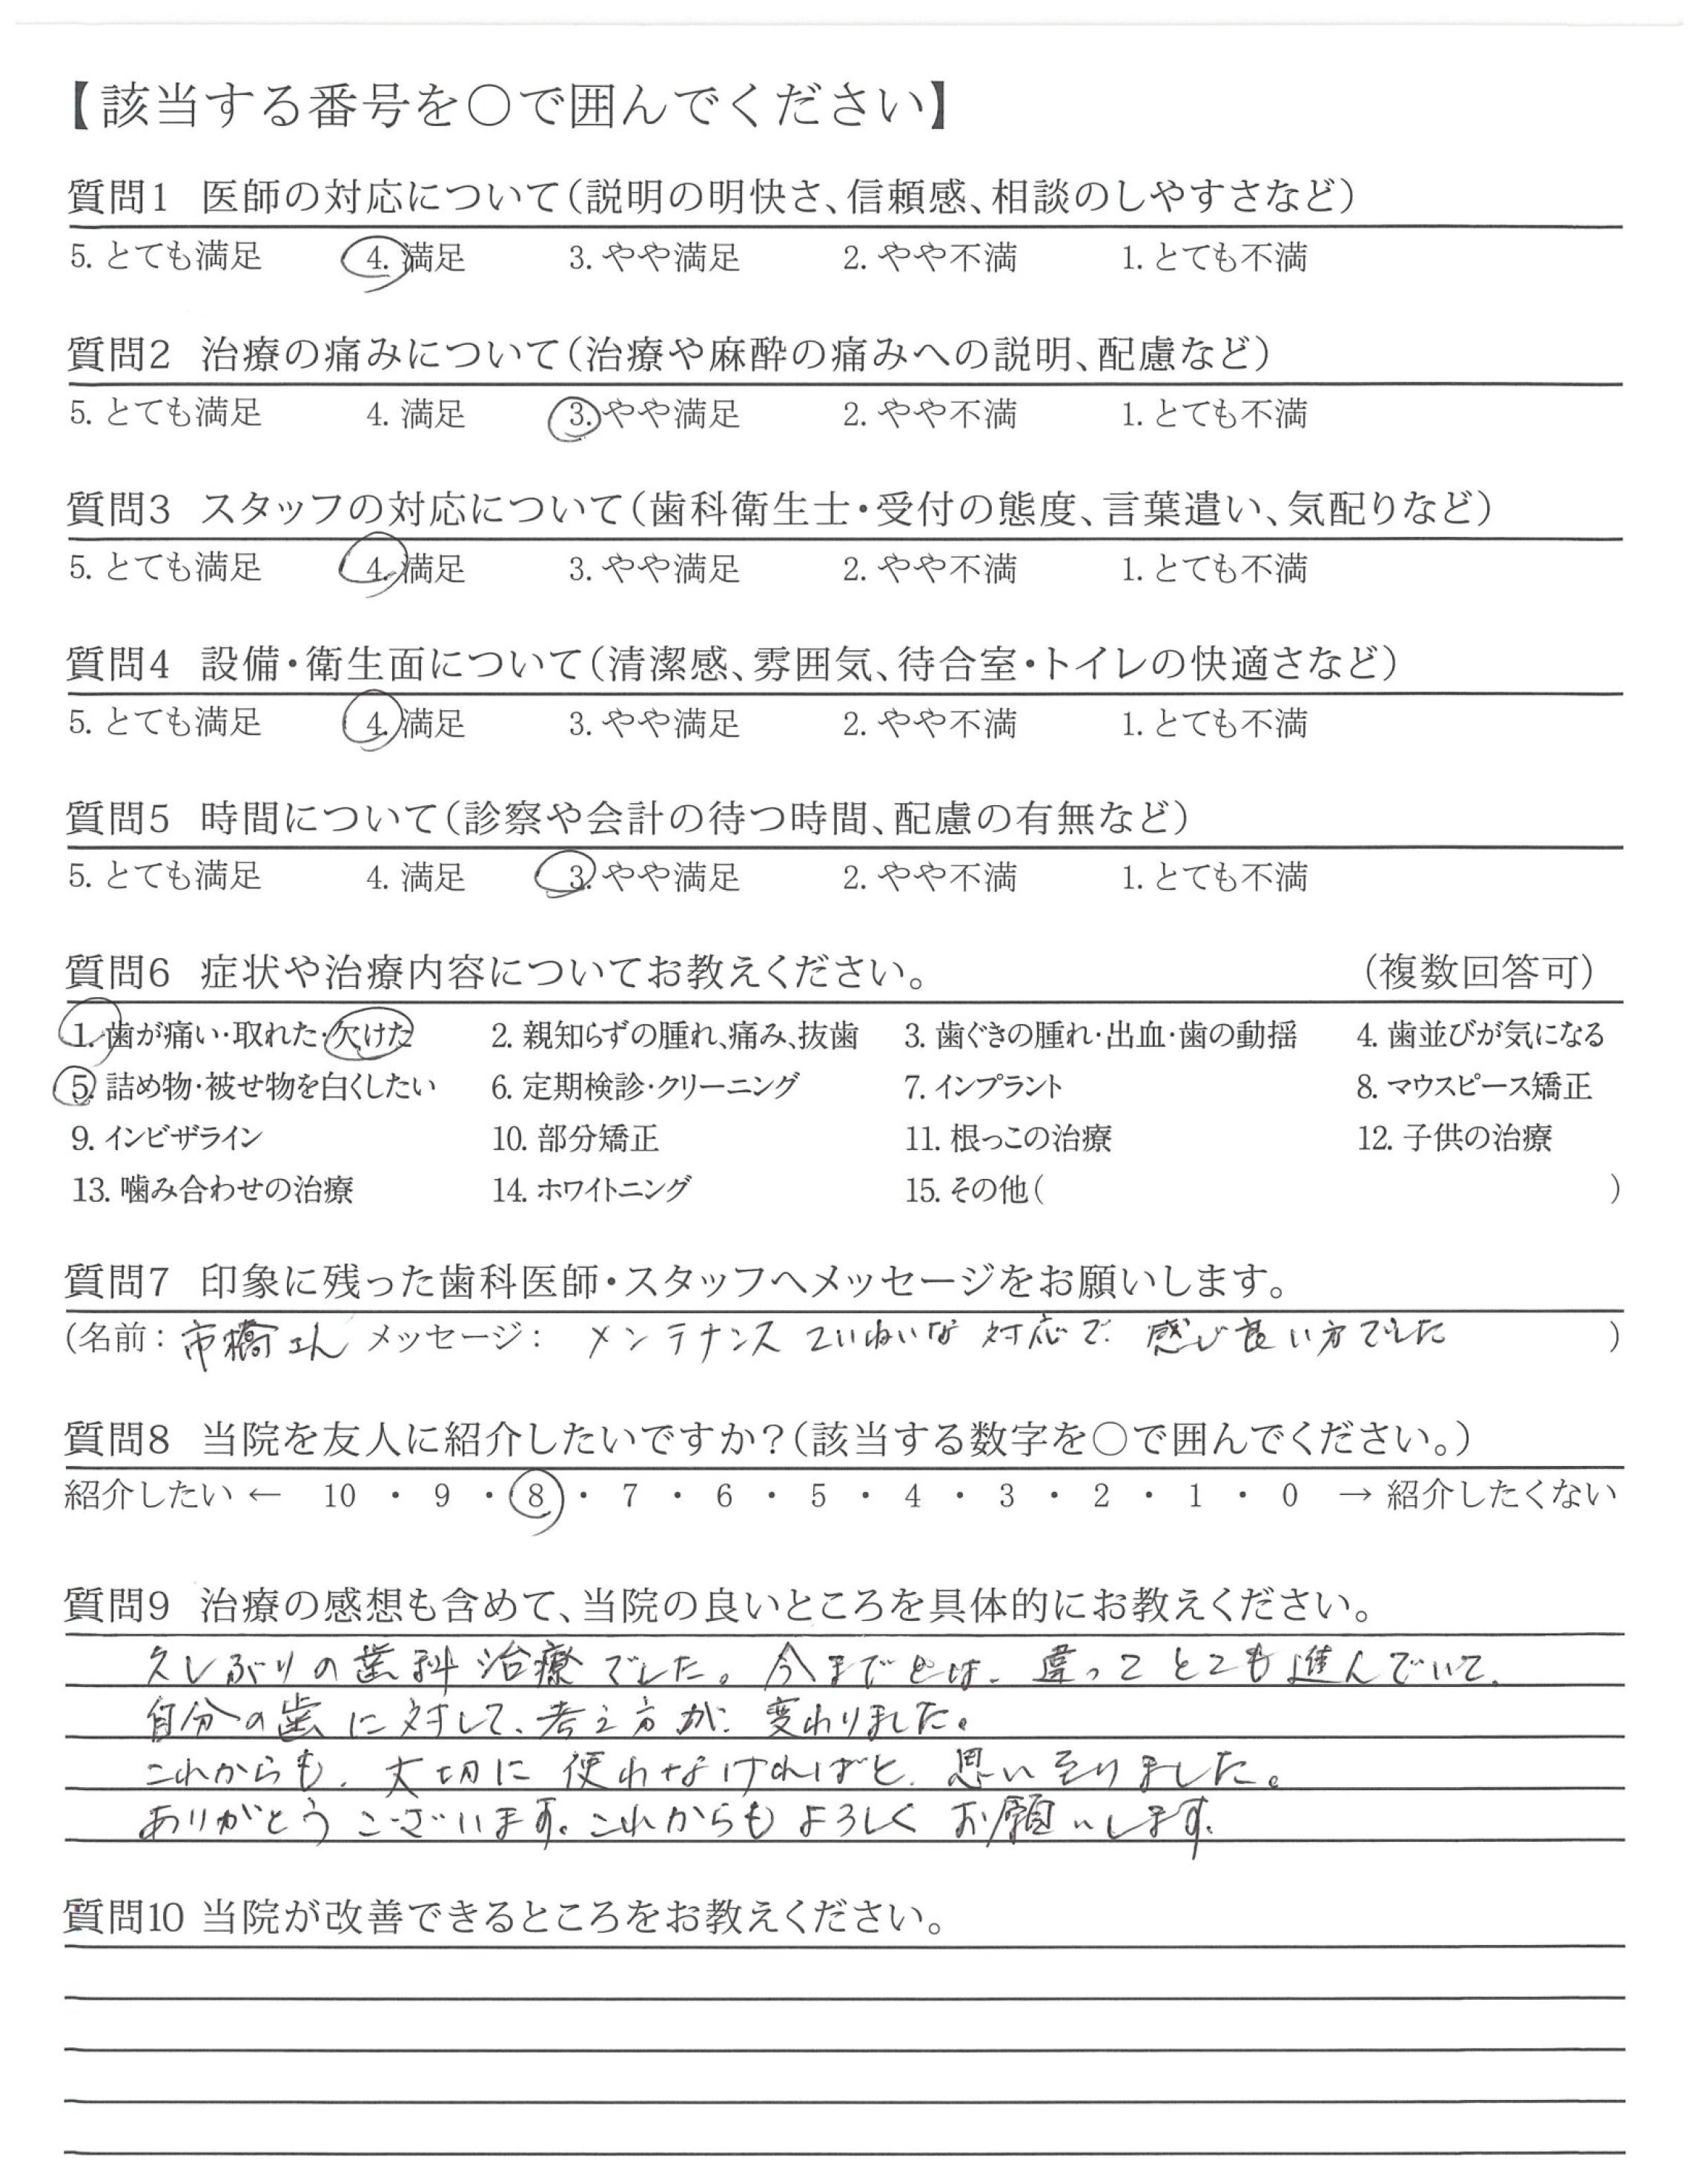 【該当する番号を○で囲んでください】
質問1 医師の対応について(説明の明快さ、信頼感、相談のしやすさなど)
5. とても満足 4. 満足 3. やや満足 2. やや不満 1. とても不満
質問2 治療の痛みについて(治療や麻酔の痛みへの説明、配慮など)
5. とても満足 4. 満足 3. やや満足 2. やや不満 1. とても不満
質問3 スタッフの対応について(歯科衛生士・受付の態度、言葉遣い、気配りなど)
5. とても満足 4. 満足 3. やや満足 2. やや不満 1. とても不満
質問4 設備・衛生面について(清潔感、雰囲気、待合室・トイレの快適さなど)
5. とても満足 4. 満足 3. やや満足 2. やや不満 1. とても不満
質問5 時間について(診察や会計の待つ時間、配慮の有無など)
5. とても満足 4. 満足 3. やや満足 2. やや不満 1. とても不満
質問6 症状や治療内容についてお教えください。 (複数回答可)
1. 歯が痛い・取れた・欠けた 2. 親知らずの腫れ、痛み、抜歯 3. 歯ぐきの腫れ・出血・歯の動揺 4. 歯並びが気になる
5. 詰め物・被せ物を白くしたい 6. 定期検診・クリーニング 7. インプラント 8. マウスピース矯正
9. インビザライン 10. 部分矯正 11. 根っこの治療 12. 子供の治療
13. 噛み合わせの治療 14. ホワイトニング 15. その他( )
質問7 印象に残った歯科医師・スタッフへメッセージをお願いします。
(名前: 市橋さん メッセージ: メンテナンス ていねいな 対応で 感じ良い方でした )
質問8 当院を友人に紹介したいですか?(該当する数字を○で囲んでください。)
紹介したい ← 10 ・ 9 ・ 8 ・ 7 ・ 6 ・ 5 ・ 4 ・ 3 ・ 2 ・ 1 ・ 0 → 紹介したくない
質問9 治療の感想も含めて、当院の良いところを具体的にお教えください。
久しぶりの歯科治療でした。今までとは、違ってとても進んでいて、
自分の歯に対して、考え方が、変わりました。
これからも、大切に使わなければと、思い至りました。
ありがとうございます。これからもよろしくお願いします。
質問10 当院が改善できるところをお教えください。